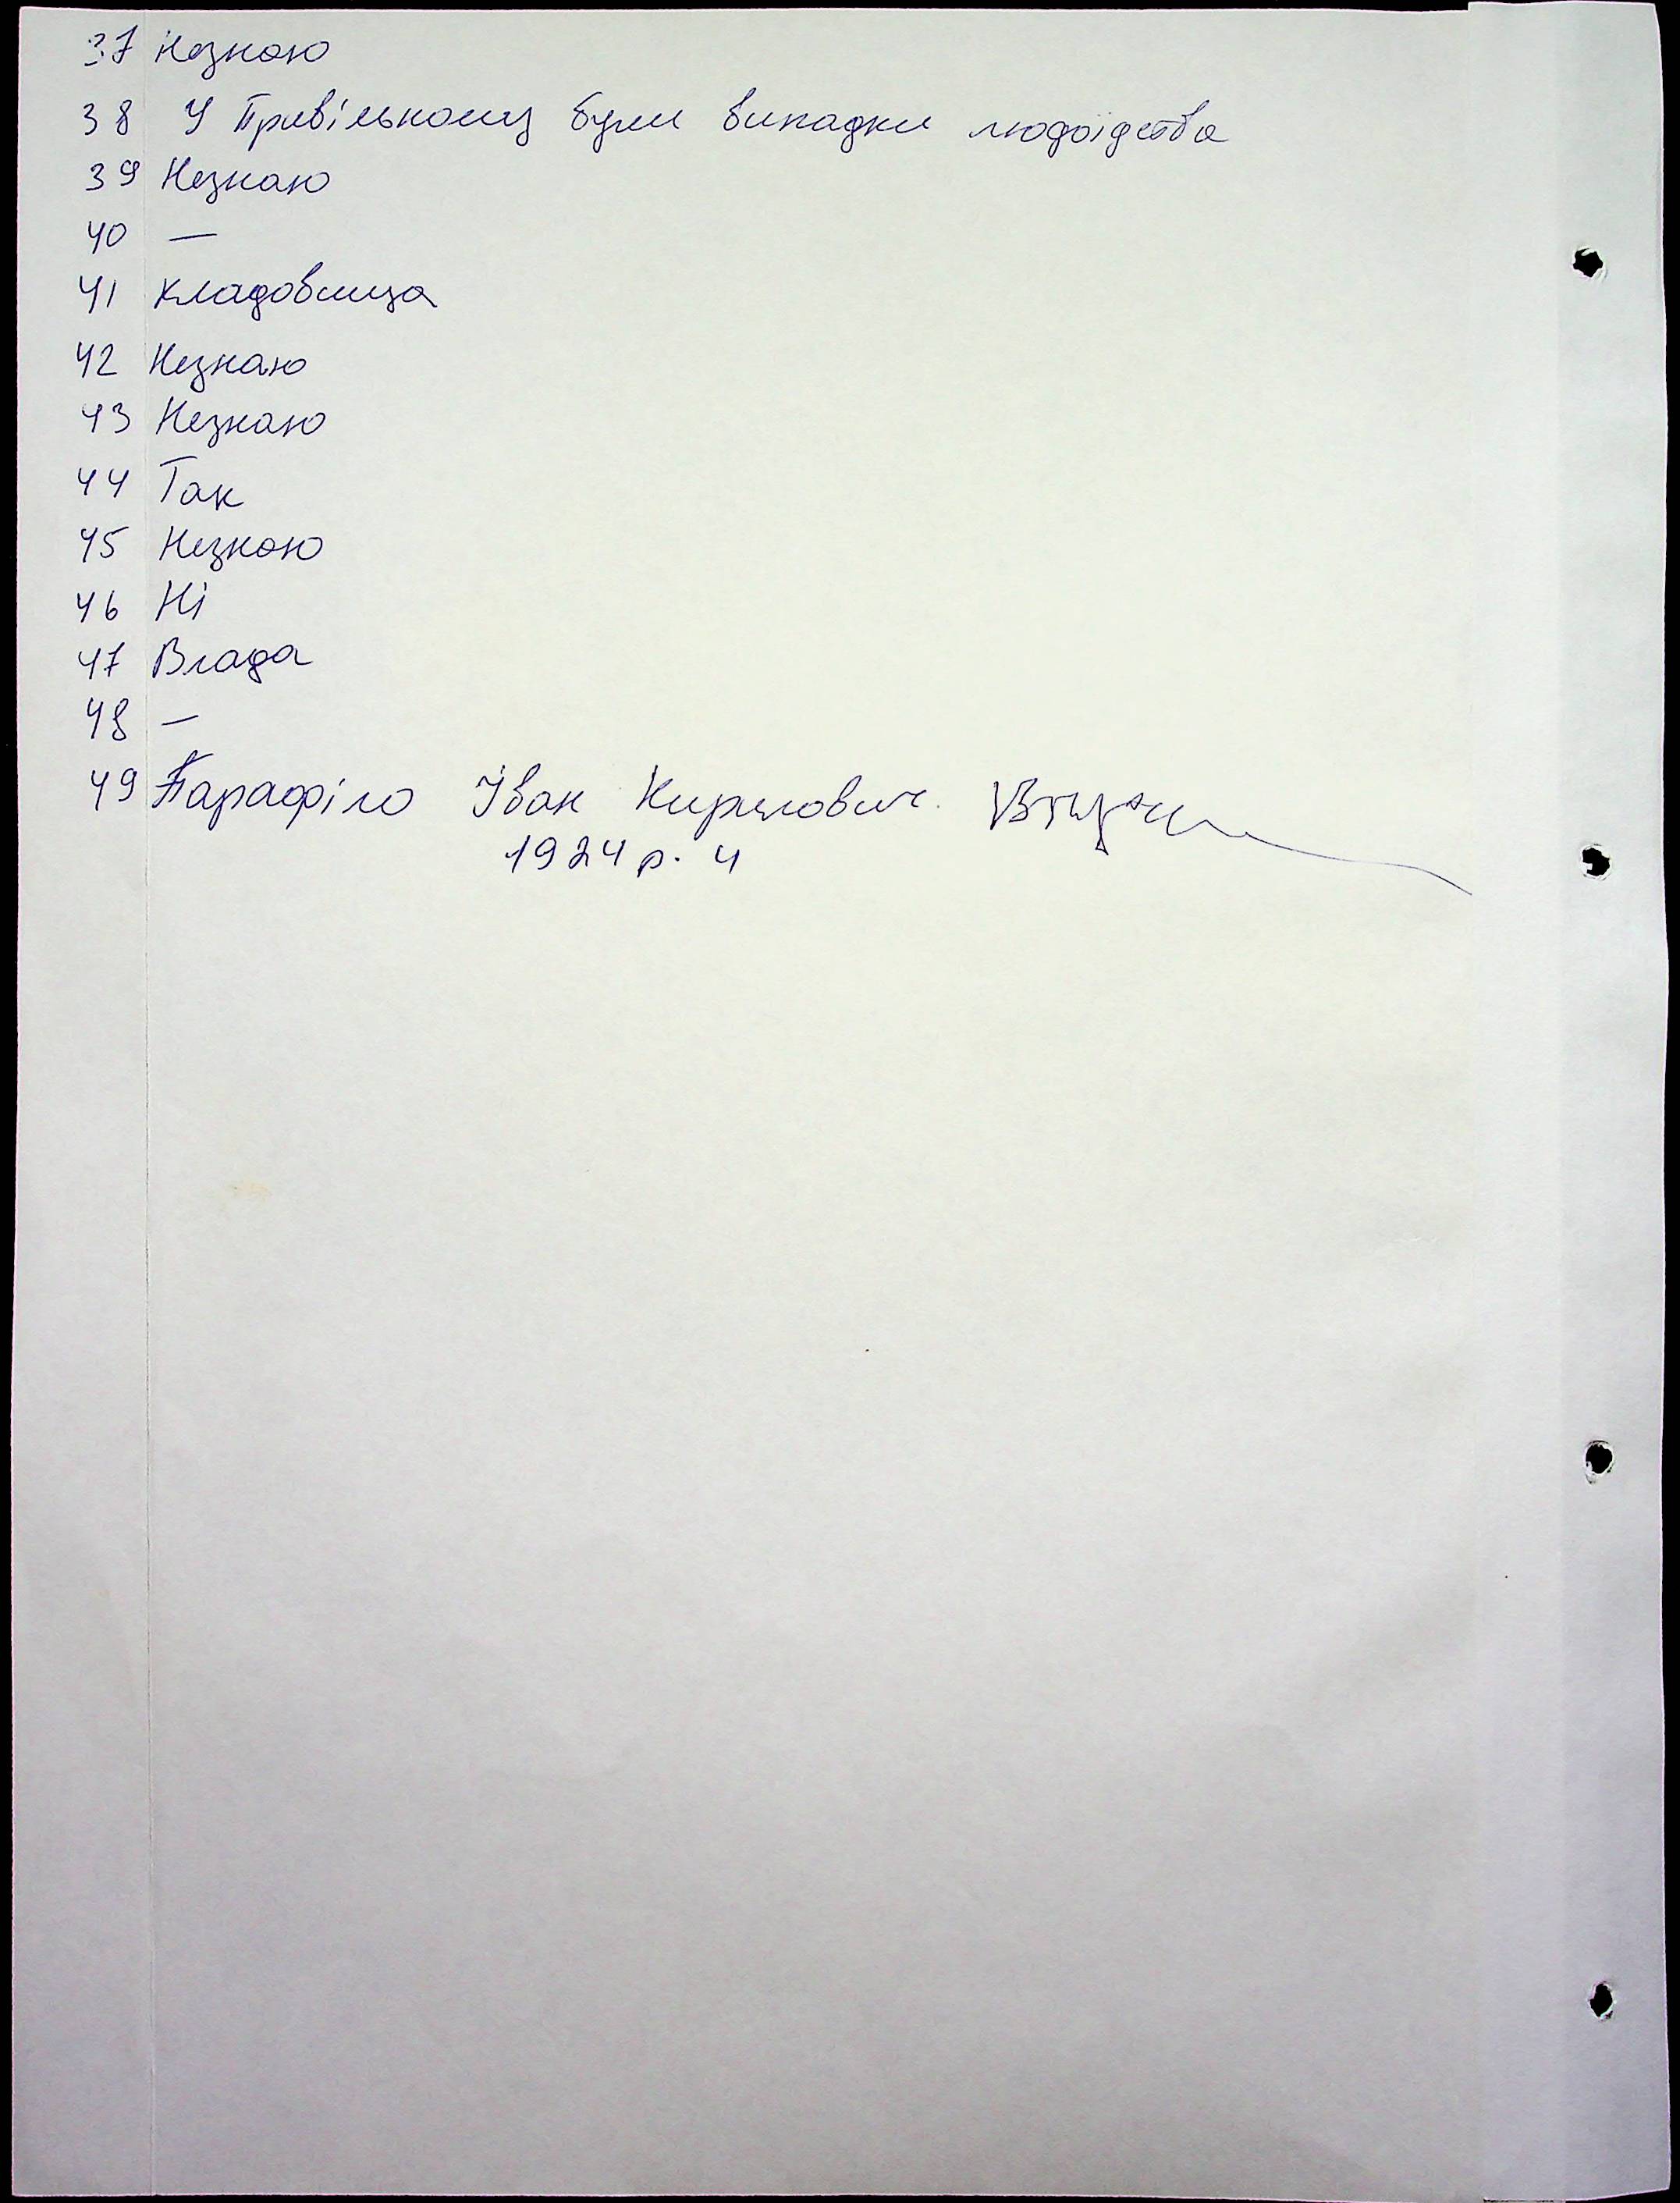 37 Незнаю
38 У Привільному були випадки людоїдства
39 Незнаю
40 —
41 кладовища
42 Незнаю
43 Незнаю
44 Так
45 Незнаю
46 Ні
47 Влада
48 —
49 Парафіло Іван Кирилович
1924 р. ч